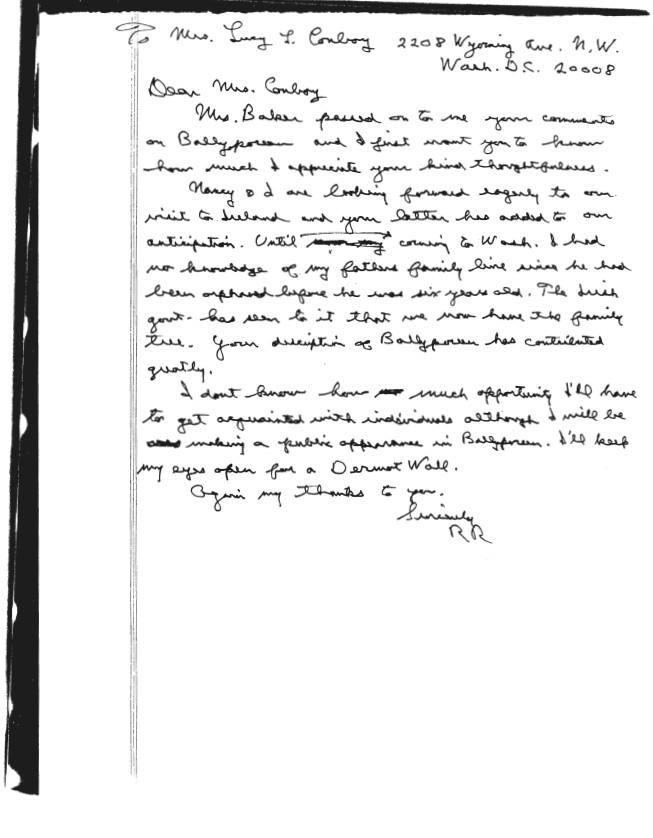 To Mrs. Lucy L. Conboy 2208 Wyoming Ave. N.W.
Wash. D.C. 20008
Dear Mrs. Conboy
Mrs. Baker passed on to me your comments
on Ballyporeen and I first want you to know
how much I appreciate your kind thoughtfulness.
Nancy & I are looking forward eagerly to our
visit to Ireland and your letter has added to our
anticipation. Until coming to Wash. I had
no knowledge of my fathers family line since he had
been orphaned before he was six years old. The Irish
govt. has seen to it that we now have the family
tree. Your desciption of Ballyporeen has contributed
greatly.
I dont know how much opportunity I'll have
to get acquainted with individuals although I will be
making a public appearance in Ballyporeen. I'll keep
my eyes open for a Dermot Wall.
Again my thanks to you.
Sincerely
RR